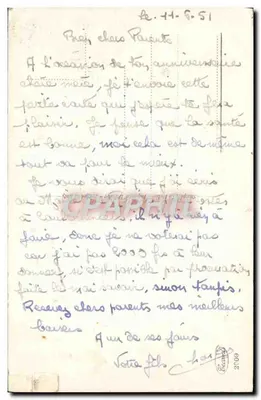 Le 11-6-51
Bien chers Parents
A l'occasion de ton anniversaire
chère mère, je t'envoie cette
petite carte qui j'espère te fera
plaisir. Je pense que la santé
est bonne, moi cela est de même
tout va pour le mieux.
Je vous dirai que j'ai
à
faire, donc je ne voterai pas
car j'ai pas 2000 frs à leur
donner, si c'est possible par procuration
faite le moi savoir, sinon tanpis.
Recevez chers parents mes meilleurs
baisers
A un de ses jours
Votre fils